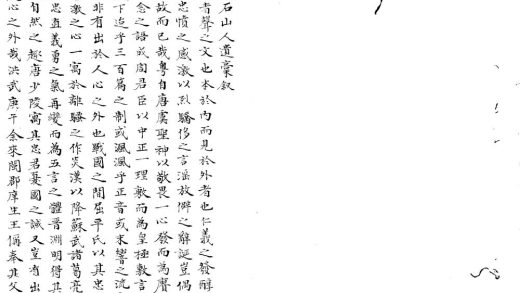 石山人遺稾叙
者聲之文也本於內而見於外者也仁義之發醇
忠憤之感激以烈驕侈之言滛放僻之辭誕豈偶
故而已哉粤自唐虞聖神以敬畏一心發而為賡
念之語或周君臣以中正一理敷而為皇極敷言
下迨乎三百篇之制或渢渢乎正音或末響之流
非有出於人心之外也戰國之間屈平氏以其忠
激之心一寓於離騷之作炎漢以降蘇武諸葛亮
忠直義勇之氣再變而為五言之體晉淵明得其
自然之趣唐少陵寓其忠君憂國之誠又豈有出
心之外哉洪武庚午余來閩郡庠生王偁奉其父